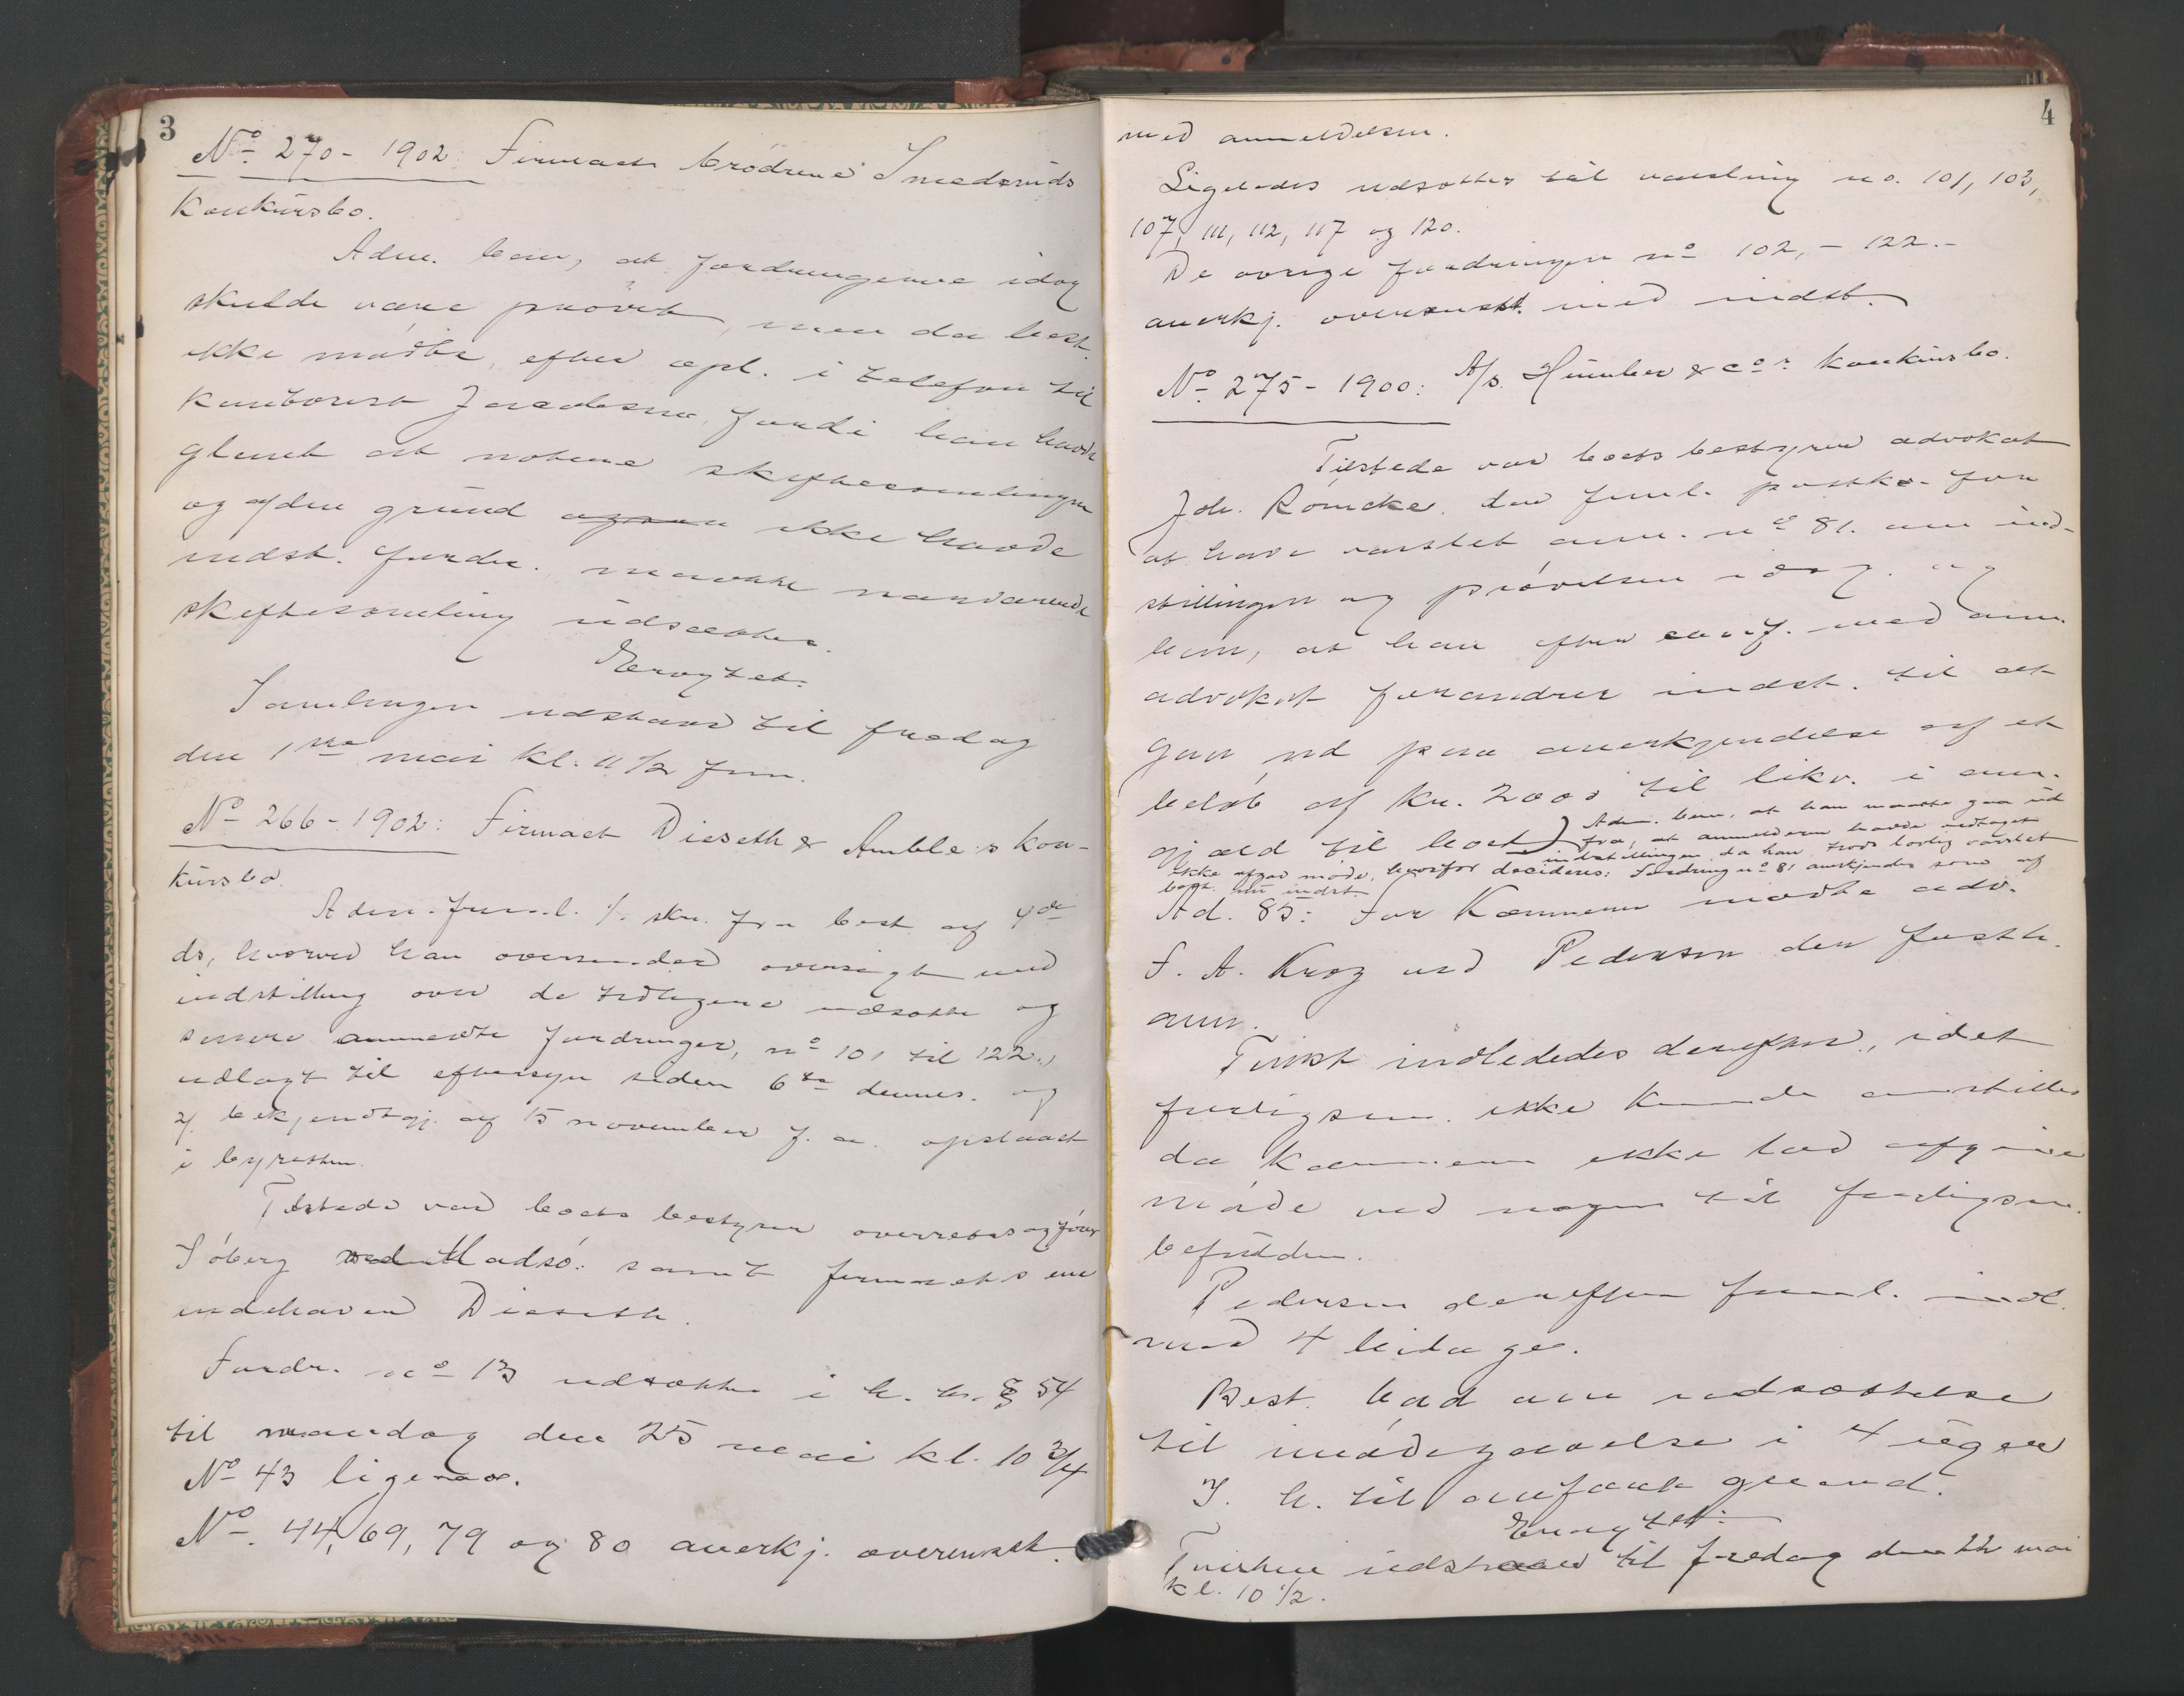 3
No 270 - 1902: Firmaet brödrene Smedsruds
konkursbo.
Adm. bem, at fordringerne idag
skulde være prövet, men da best.
ikke mödte, efter opl. i telefon til
kontorist fordi han havde
glemt at notere skiftesamlingen
og af den grund ikke havde
indst. fordr. maatte nærværende
skiftesamling udsættes.
Eragtet:
Samlingen udstaar til fredag
den 1ste mai kl. 11 1/2 fm.
No 266 - 1902: Firmaet Dieseth & Amble's kon-
kursbo.
Adm. freml. 1/. skr. fra best. af 4de
ds, hvorved han oversender oversigt med
indstilling over de tidligere udsatte og
senere anmeldte fordringer, no 101 til 122.,
udlagt til eftersyn siden 6te dennes. og
2/. bekjendtgj. af 15 november f. a. opslaaet
i byretten.
Tilstede var boets bestyrer overretssagförer
Söberg ved Madsö: samt firmaets ene
indehaver Dieseth.
Fordr. no 13 udsættes i h. t. § 54
til mandag den 25 mai kl. 10 3/4
No 43 ligesaa.
No 44, 69, 79 og 80 anerkj. overensst.
4
med anmeldelsen.
Ligeledes udsættes til varsling no. 101, 103,
107, 111, 112, 117 og 120.
De övrige fordringer no 102, - 122. -
anerkj. overensst. med indst.
No 275 - 1900: A/s. Humber & co's konkursbo.
Tilstede var boets bestyrer advokat
Joh. Römcke. der freml. postkv. for
at have varslet anm. no 81. om ind-
stillingen og prövelsen idag. og
bem, at han efter conf. med anm.
advokat forandrer indst. til at
gaa ud paa anerkjendelse af et
belöb af kr. 2000 til likv. i anm.
gjæld til boet) Adm. bem. at han maatte gaa ud
fra, at anmelderen havde vedtaget
indstillingen, da han trods lovlig varslet
ikke afgav möde, hvorfor decideres: Fordring no 81 anerkjendes som af
best. nu indst.
Ad. 85: For Kæmneren mödte adv.
F. A. Krog ved Pedersen der fasth.
anm.
Tvist indlededes derefter, idet
forligspr. ikke kunde anstilles
da Kæmneren ikke lod afgive
möde ved nogen til forligspr.
beföiden.
Pedersen derefter freml. indl.
med 4 bilager.
Best. bad om udsættelse
til imödegaaelse i 4 uger
I. h. til anfört grund.
Eragtet:
Tvisten udstaaer til fredag den 22 mai
kl. 10 1/2.